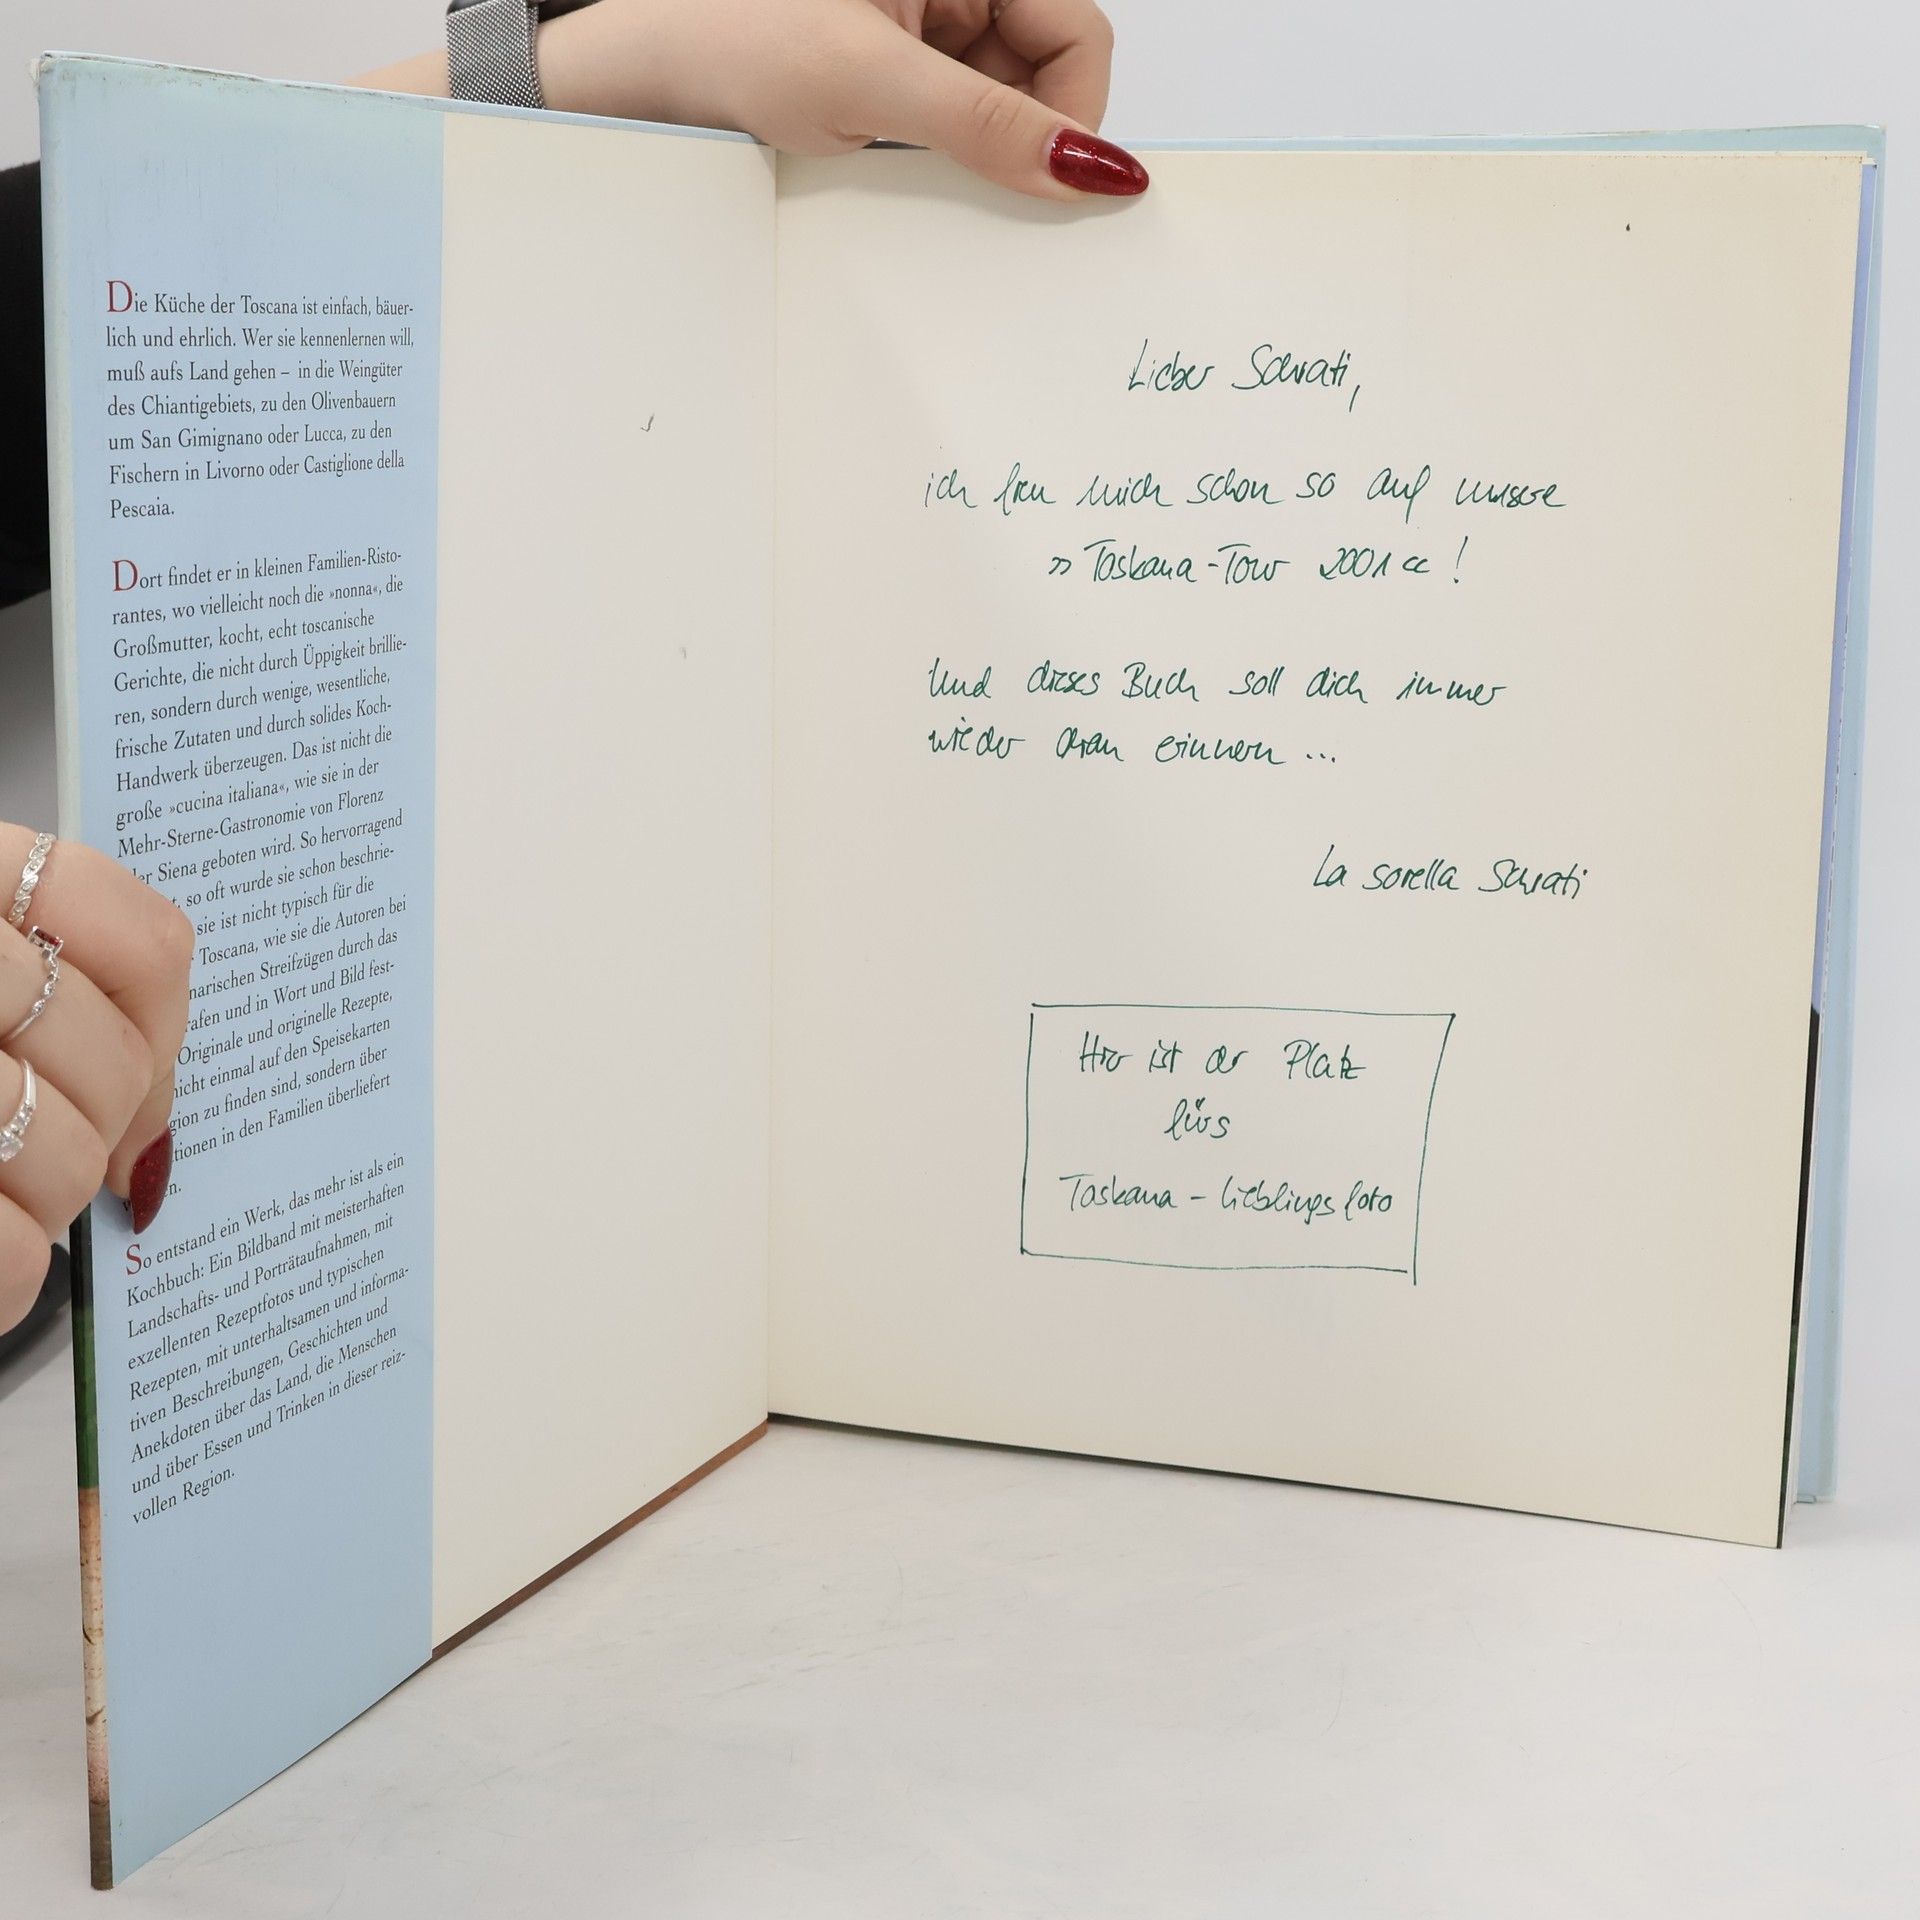 Die Küche der Toscana ist einfach, bäuer-
lich und ehrlich. Wer sie kennenlernen will,
muß aufs Land gehen – in die Weingüter
des Chiantigebiets, zu den Olivenbauern
um San Gimignano oder Lucca, zu den
Fischern in Livorno oder Castiglione della
Pescaia.
Dort findet er in kleinen Familien-Risto-
rantes, wo vielleicht noch die »nonna«, die
Großmutter, kocht, echt toscanische
Gerichte, die nicht durch Üppigkeit brillie-
ren, sondern durch wenige, wesentliche,
frische Zutaten und durch solides Koch-
Handwerk überzeugen. Das ist nicht die
große »cucina italiana«, wie sie in der
Mehr-Sterne-Gastronomie von Florenz
der Siena geboten wird. So hervorragend
so oft wurde sie schon beschrie-
sie ist nicht typisch für die
Toscana, wie sie die Autoren bei
narischen Streifzügen durch das
rafen und in Wort und Bild fest-
Originale und originelle Rezepte,
nicht einmal auf den Speisekarten
gion zu finden sind, sondern über
tionen in den Familien überliefert
So entstand ein Werk, das mehr ist als ein
Kochbuch: Ein Bildband mit meisterhaften
Landschafts- und Porträtaufnahmen, mit
exzellenten Rezeptfotos und typischen
Rezepten, mit unterhaltsamen und informa-
tiven Beschreibungen, Geschichten und
Anekdoten über das Land, die Menschen
und über Essen und Trinken in dieser reiz-
vollen Region.
Lieber
ich freu mich schon so auf unsere
»Toskana-Tour 2001«!
Und dieses Buch soll dich immer
wieder dran erinnern ...
La sorella
Hier ist der Platz
fürs
Toskana - Lieblingsfoto